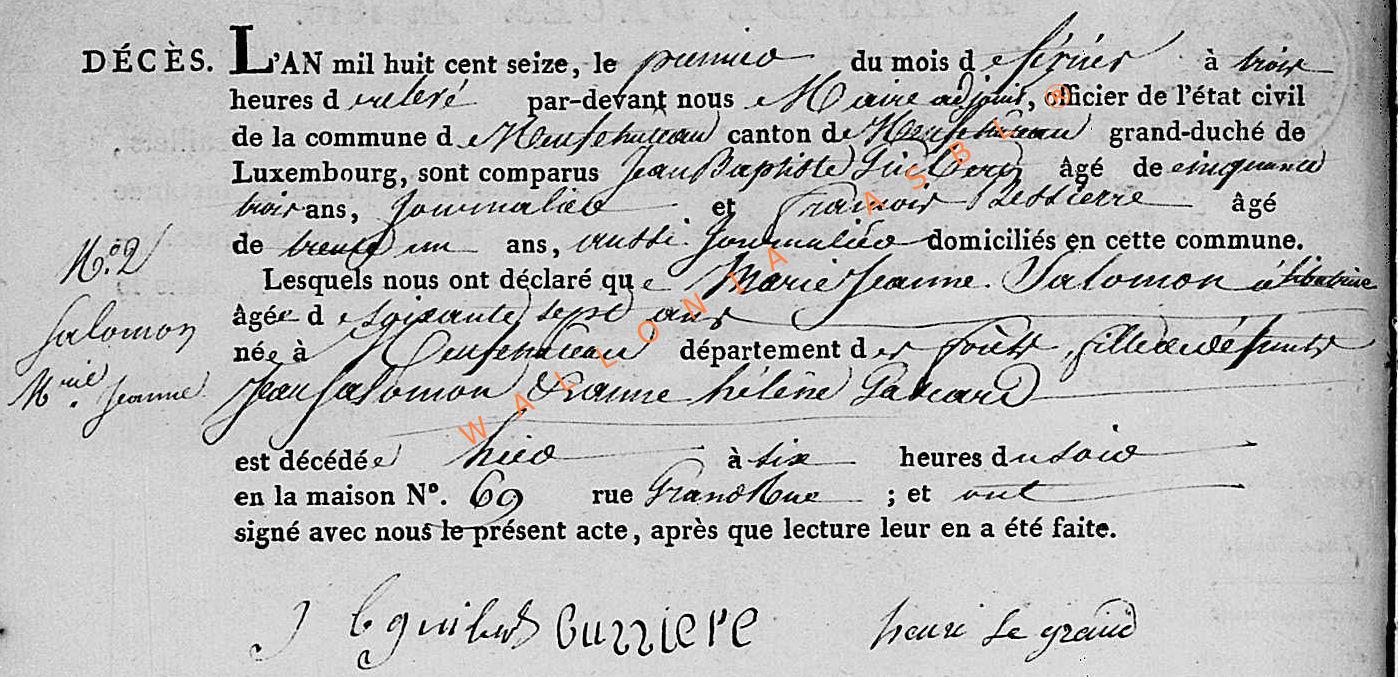 DÉCÈS. L'AN mil huit cent seize, le premier du mois de février à trois
heures de relevé par-devant nous Maire adjoint, officier de l'état civil
de la commune de Neufchateau canton de Neufchateau grand-duché de
Luxembourg, sont comparus Jean Baptiste Guilbert âgé de cinquante
trois ans, Journalier et François âgé
de trente un ans, aussi Journalier domiciliés en cette commune.
N.º 2
Lesquels nous ont déclaré que Marie Jeanne Salomon
Salomon
âgée de soixante sept ans
née à Neufchateau département des forêts, fille de défunts
M.rie Jeanne
Jean Salomon & Jeanne hélène
est décédée hier à six heures du soir
en la maison Nº. 69 rue Grand Rue ; et ont
signé avec nous le présent acte, après que lecture leur en a été faite.
J b guilbert henri Le grand
WALLONIA ASBL ®